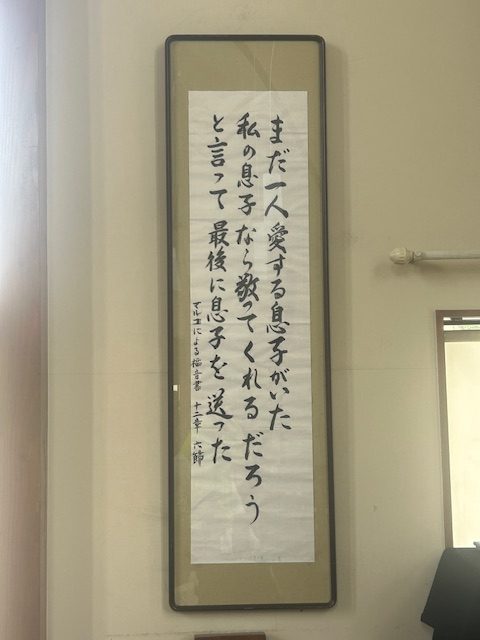 まだ一人愛する息子がいた
私の息子なら敬ってくれるだろう
と言って最後に息子を送った
マルコによる福音書 十二章 六節